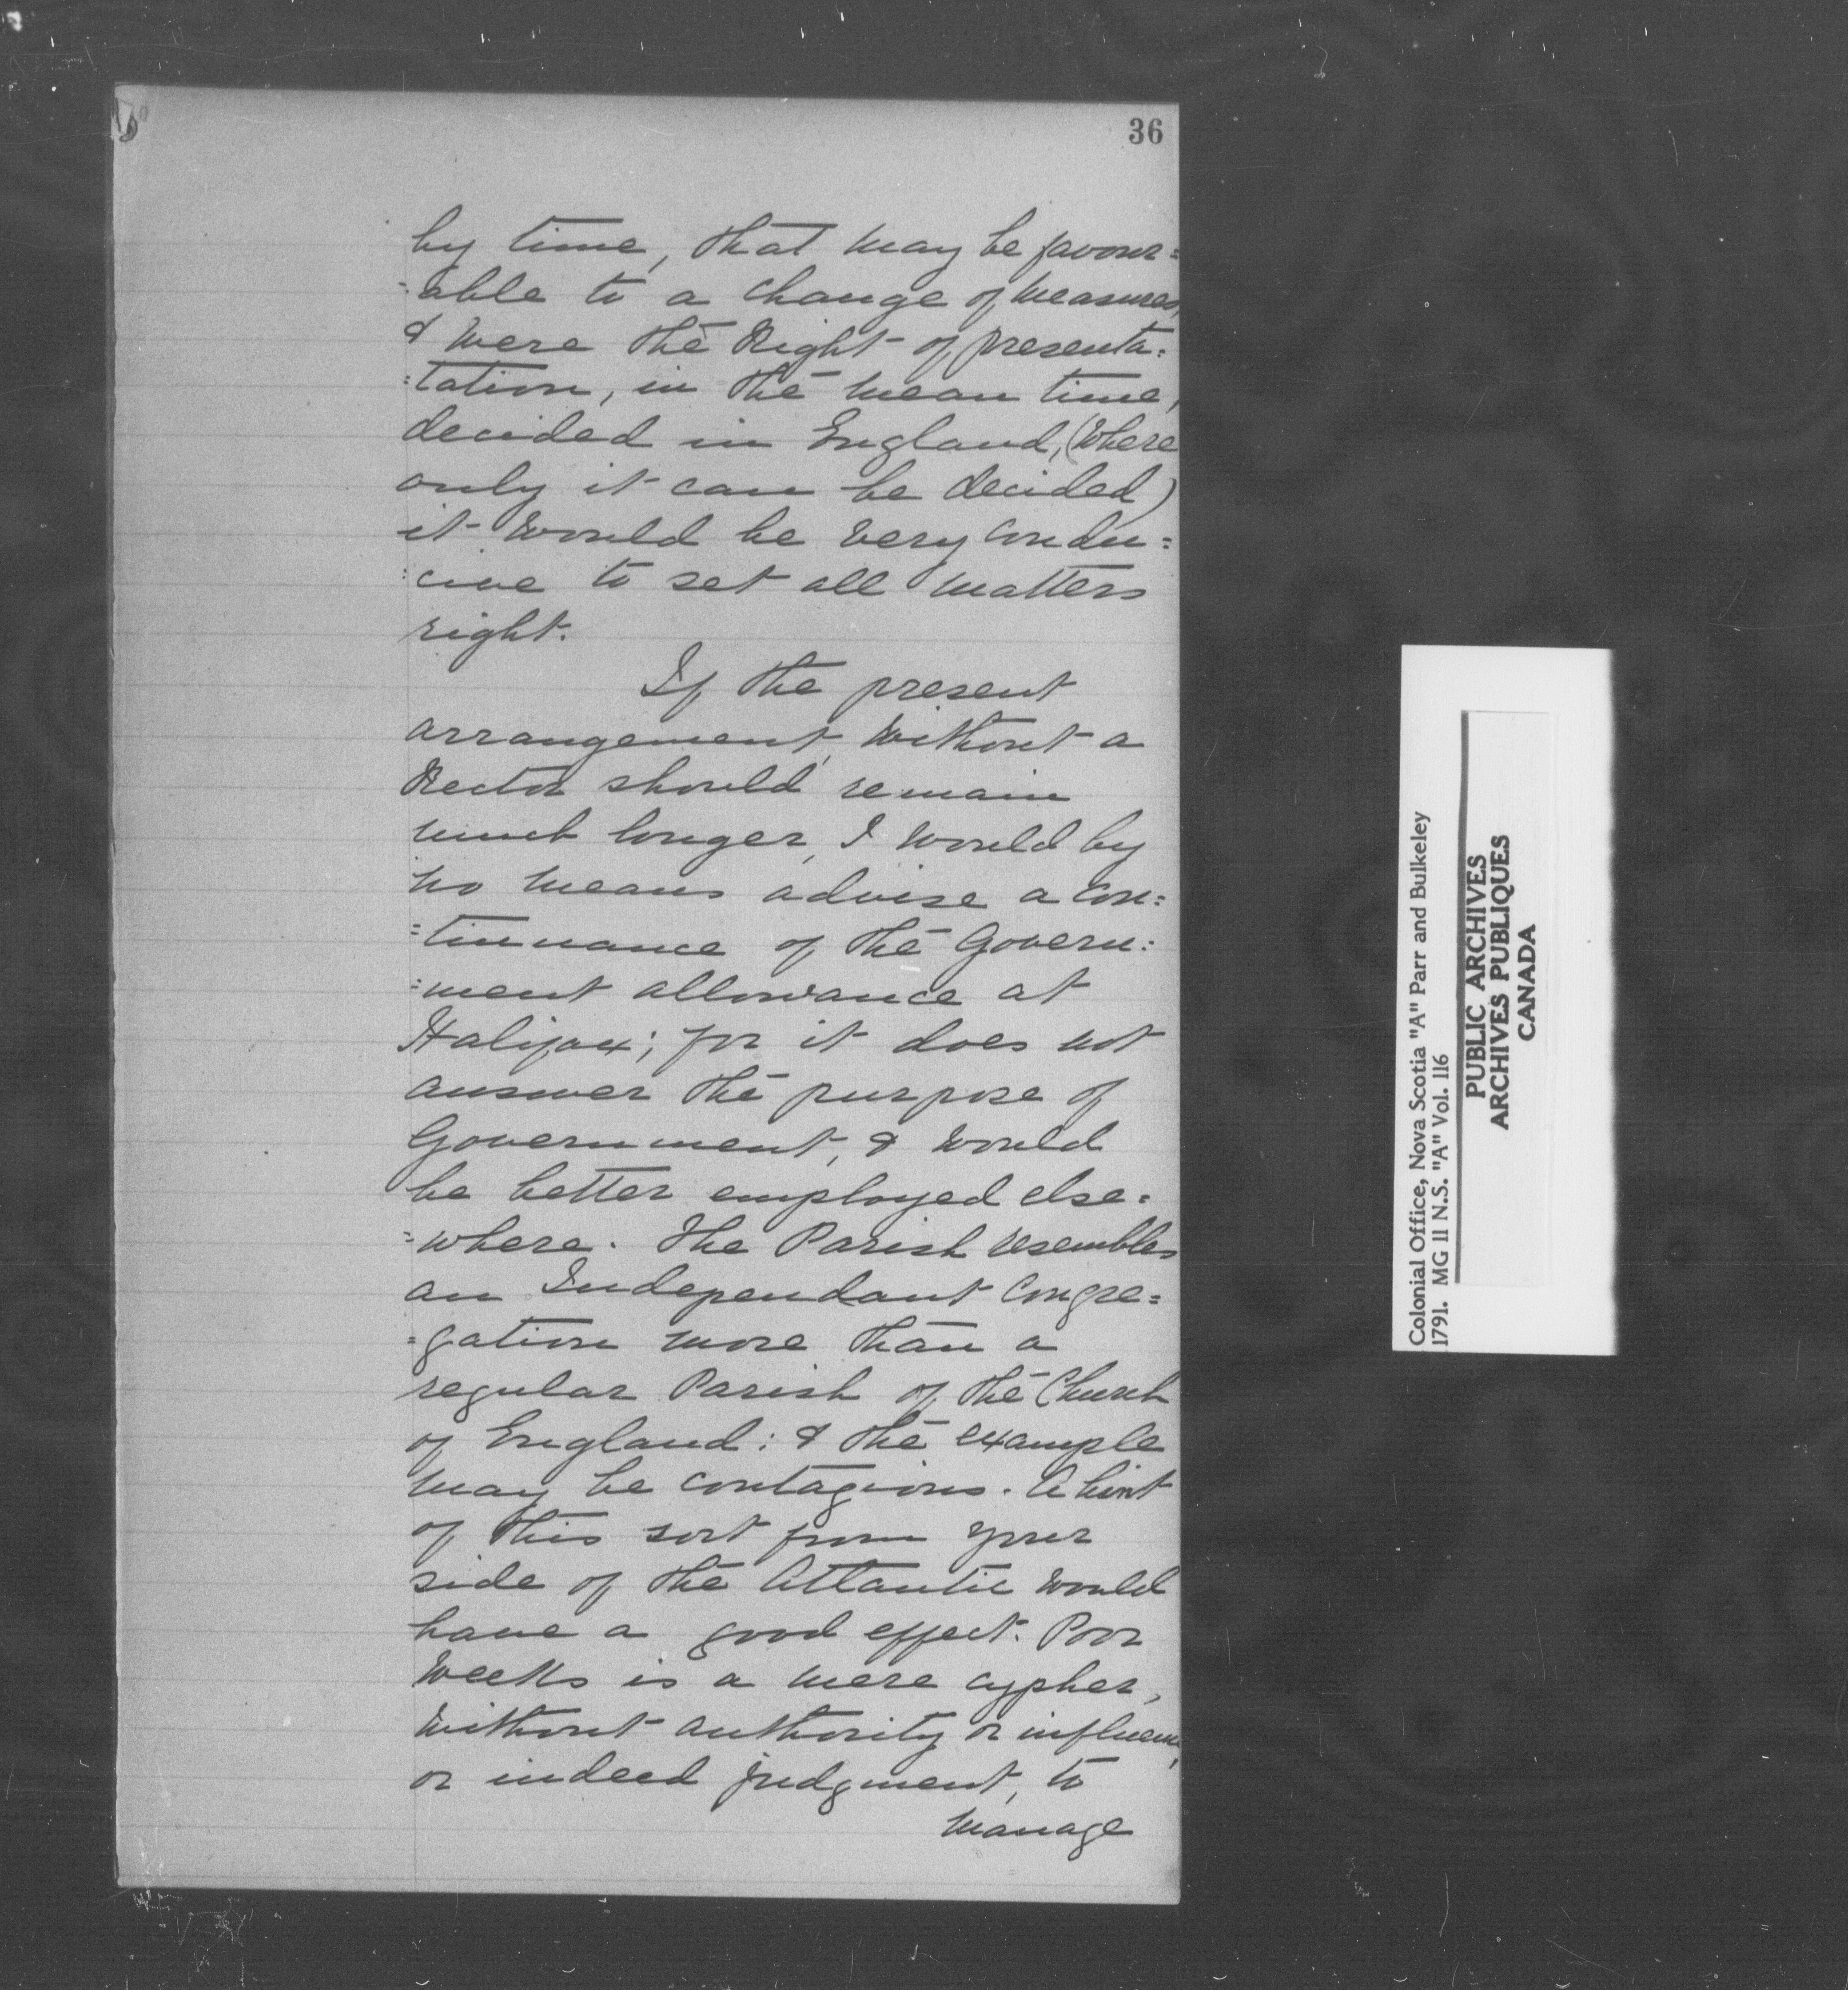 36
by time, that may be favour=
=able to a change of measures,
& were the Right of presenta=
=tation, in the mean time,
decided in England, (where
only it can be decided)
it would be very condu=
=cive to set all matters
right.
If the present
arrangement, without a
Rector should remain
much longer, I would by
no means advise a con=
=tinuance of the Govern=
=ment allowance at
Halifax; for it does not
answer the purpose of
Government, & would
be better employed else=
=where. The Parish resembles
an Independant Congre=
=gation more than a
regular Parish of the Church
of England: & the example
may be contagious. A hint
of this sort from your
side of the Atlantic would
have a good effect. Poor
Weeks is a mere cypher,
without authority or influence,
or indeed judgment, to
manage
Colonial Office, Nova Scotia "A" Parr and Bulkeley
1791. MG 11 N.S. "A" Vol. 116
PUBLIC ARCHIVES
ARCHIVES PUBLIQUES
CANADA